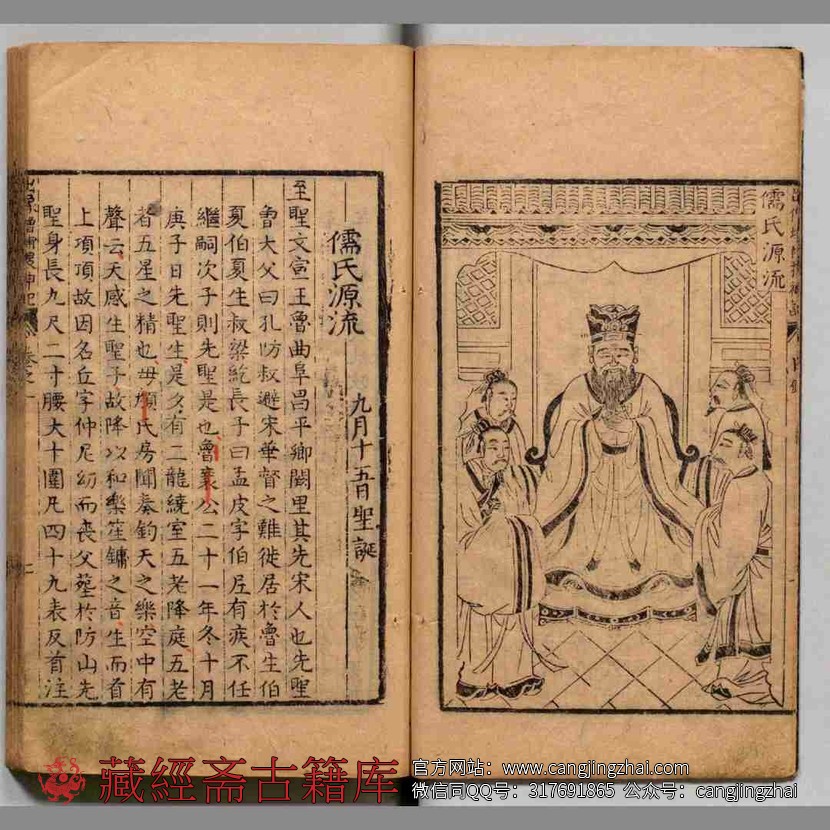 儒氏源流
儒氏源流
九月十五日聖誕
至聖文宣王魯曲阜昌平鄉闕里其先宋人也先聖
魯大父曰孔防叔避宋華督之難徙居於魯生伯
夏伯夏生叔梁紇長子曰孟皮字伯尼有疾不任
繼嗣次子則先聖是也魯襄公二十一年冬十月
庚子日先聖生是夕有二龍繞室五老降庭五老
者五星之精也母顏氏房聞奏鈞天之樂空中有
聲云天感生聖子故降以和樂笙鏞之音生而首
上項頂故因名丘字仲尼幼而喪父塟於防山先
聖身長九尺二寸腰大十圍凡四十九表反首注
二
藏經斋古籍库
官方网站：www.cangjingzhai.com
微信同QQ号：317691865 公众号：cangjingzhai